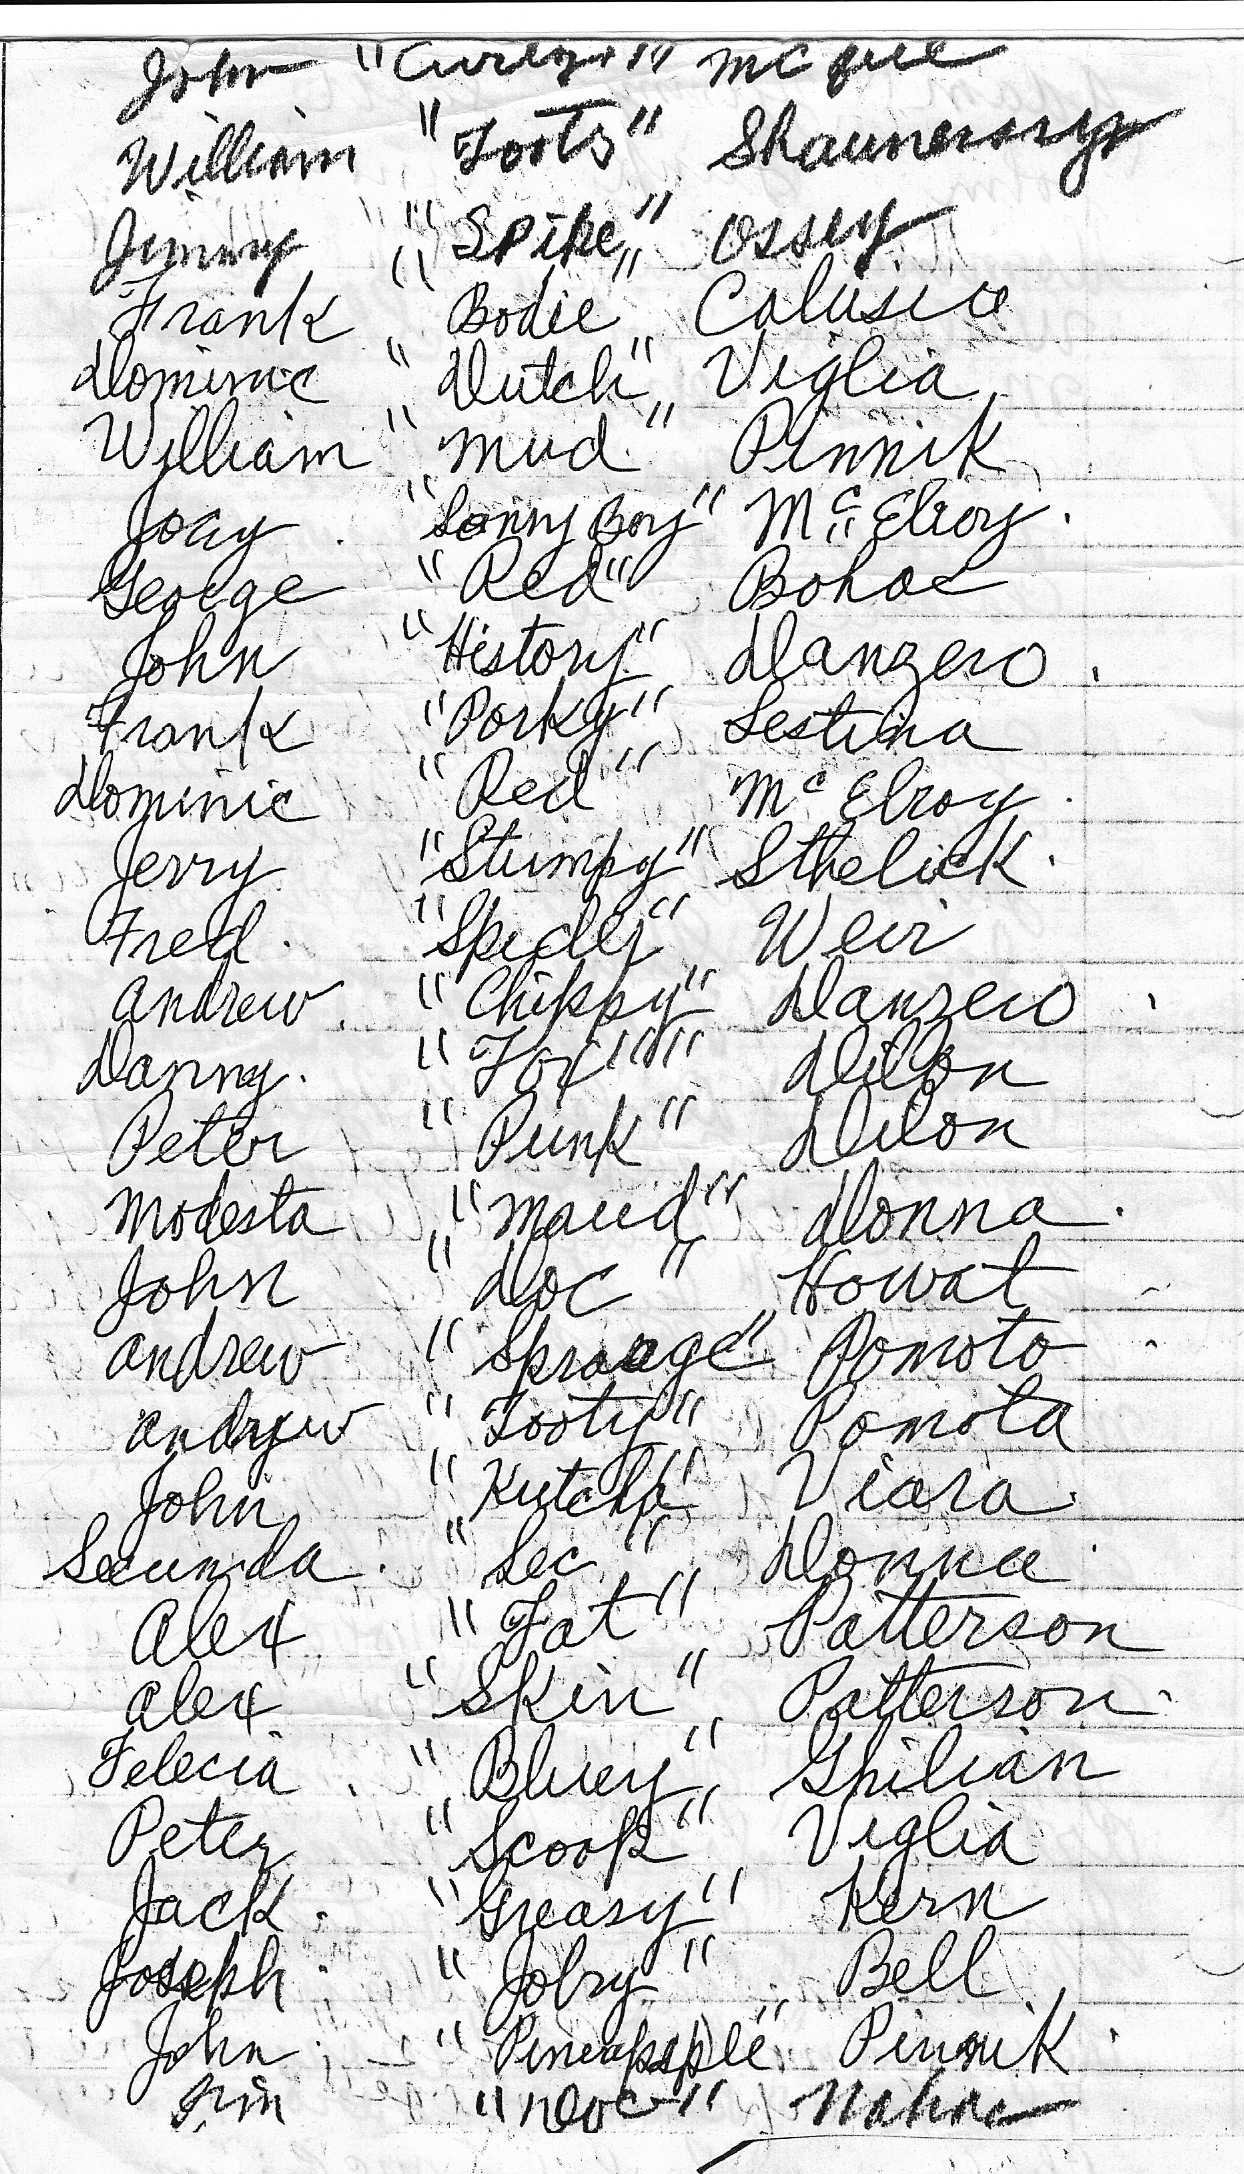 John "Curly" McGee
William "Toots" Shaunessy
Jimmy "Spike" Ossey
Frank "Bodie" Calusie
Dominic "Dutch" Viglia
William "Mud" Pinnik
Joey "Sonny Boy" McElroy
George "Red" Bohac
John "History" Danzero
Frank "Porky" Sestina
Dominic "Red" McElroy
Jerry "Stumpy" Sthelick
Fred "Spider" Weir
Andrew "Chippy" Danzero
Danny "Fox" Dillon
Peter "Punk" Dillon
Modesta "Maud" Donna
John "Doc" Howat
Andrew "Spraage" Pomoto
Andrew "Tooty" Pomota
John "Kutcha" Viara
Secunda "Sec" Donna
Alex "Fat" Patterson
Alex "Skin" Patterson
Felecia "Bluey" Ghilian
Peter "Scoop" Viglia
Jack "Greasy" Kern
Joseph "Jolry" Bell
John "Pineapple" Pinnik
Jim "Doc"